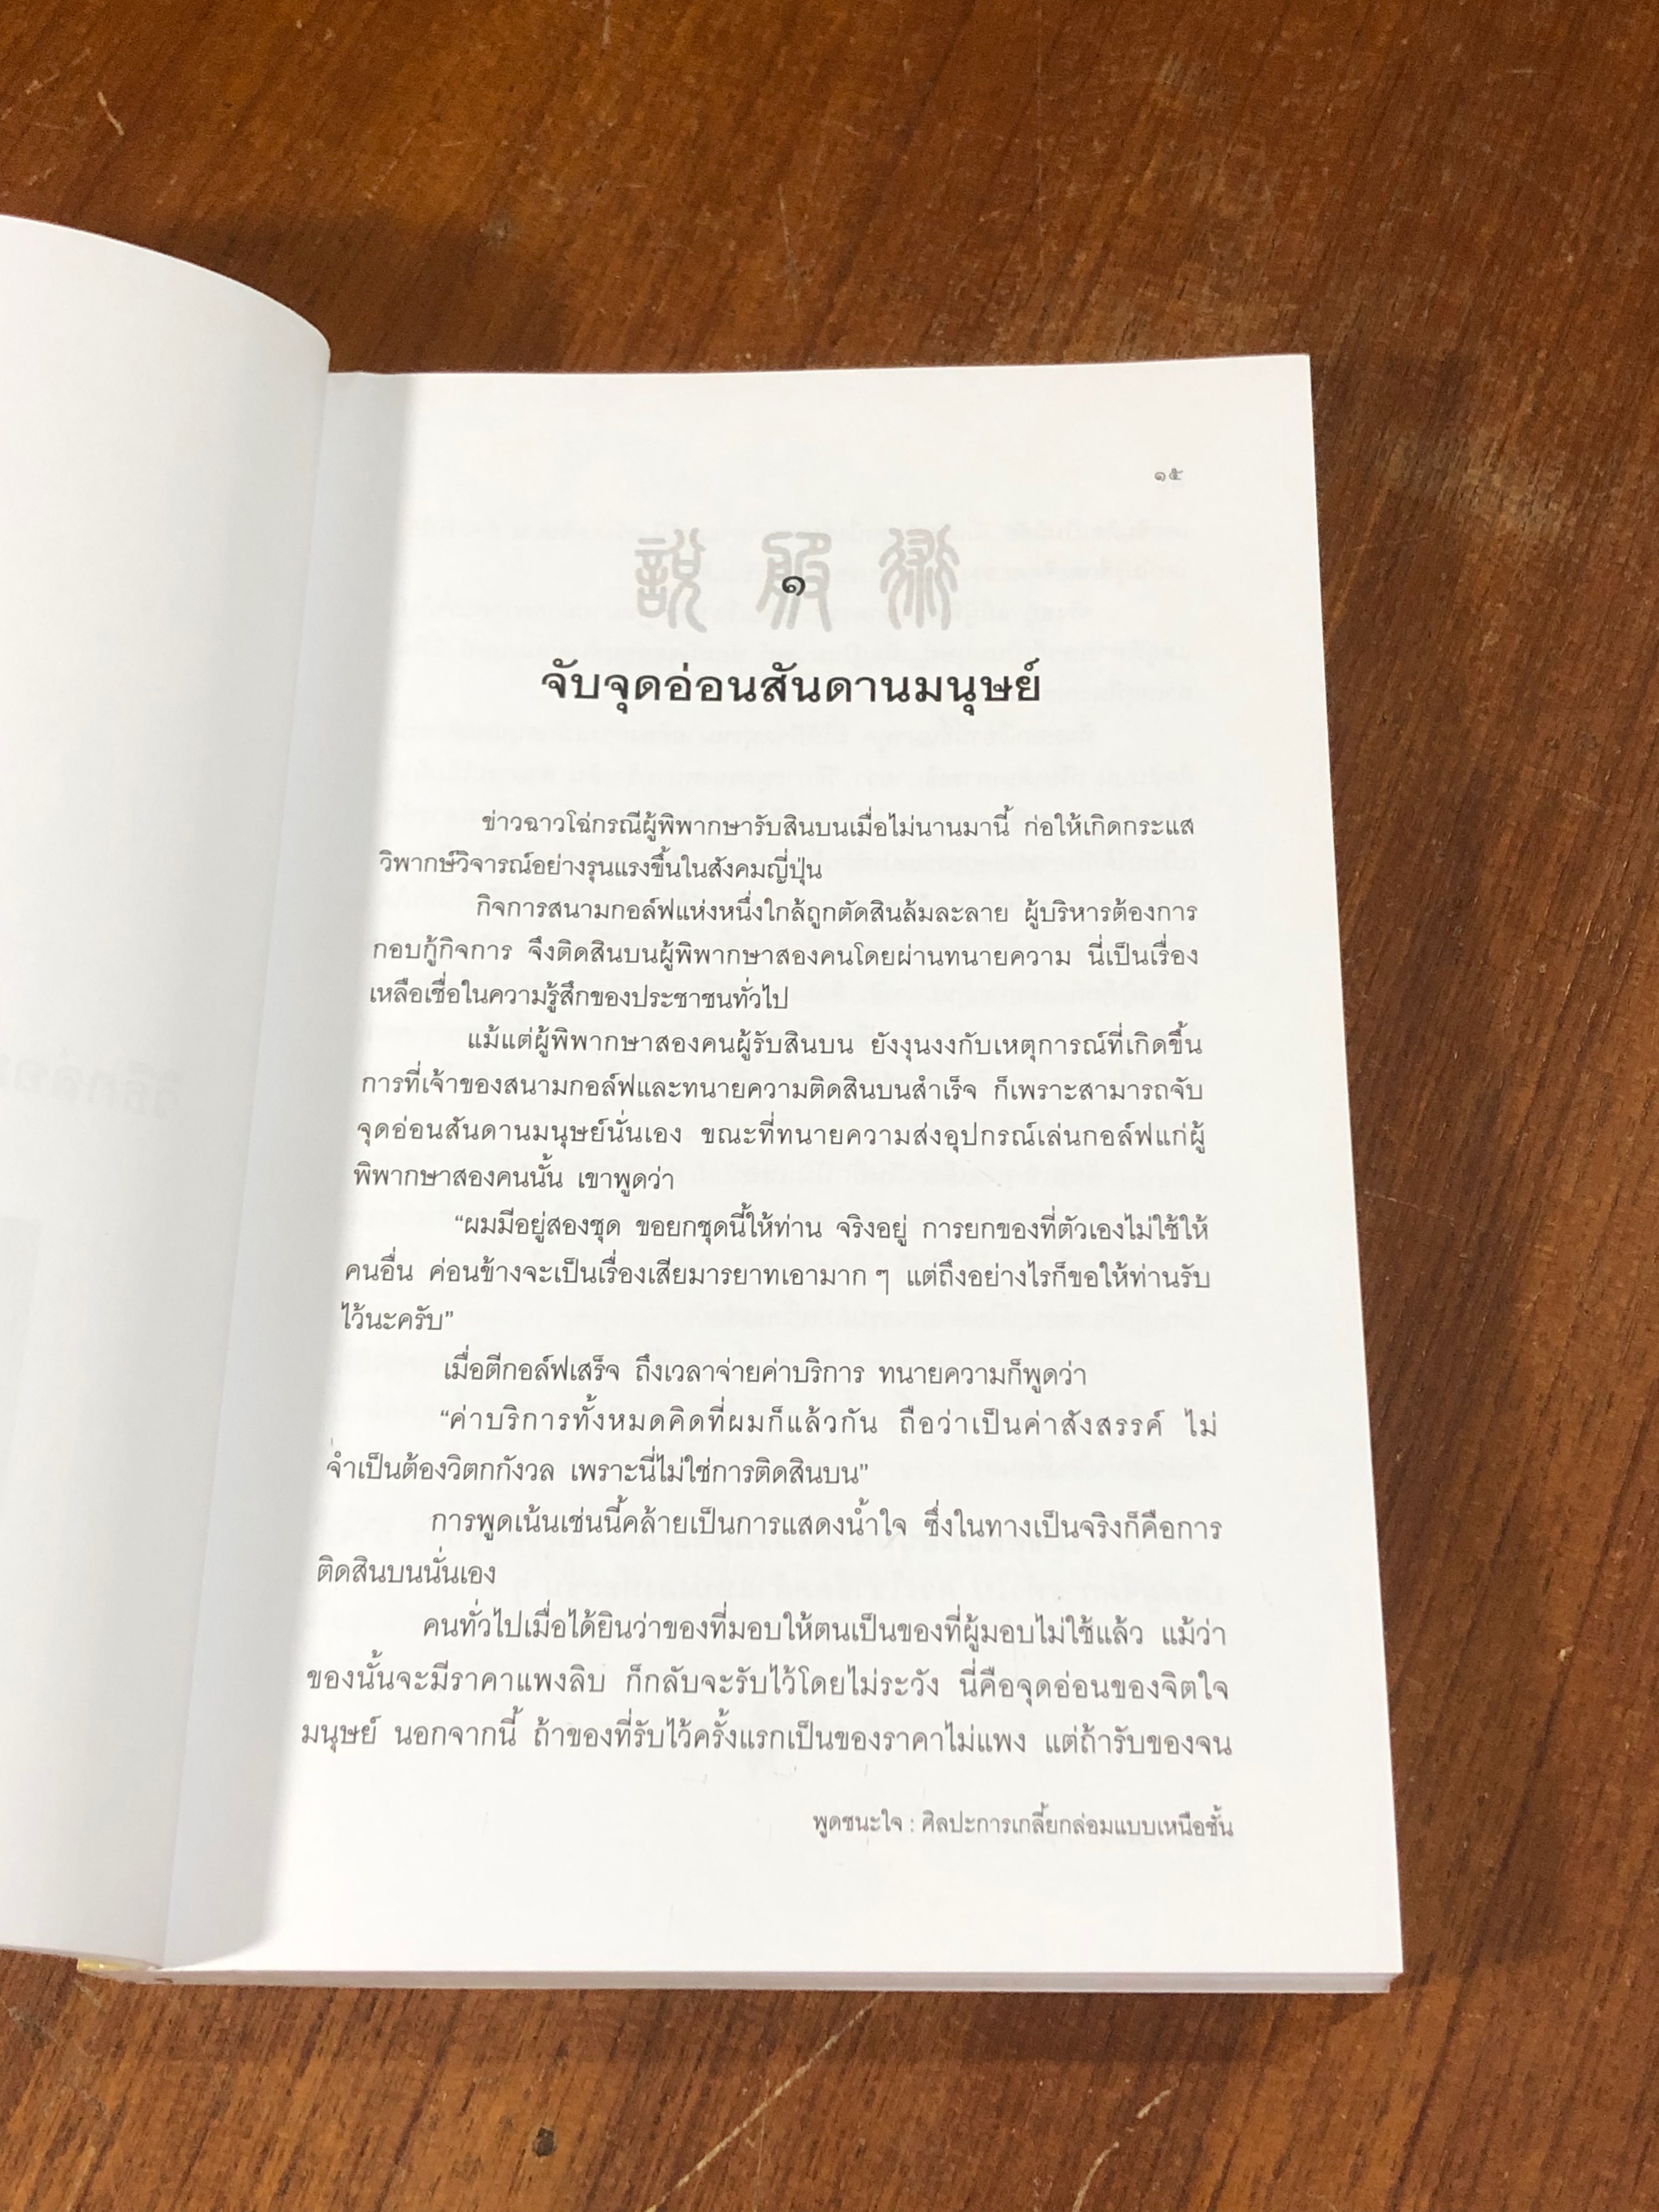 ๑๕
說服術
๑
จับจุดอ่อนสันดานมนุษย์
ข่าวฉาวโฉ่กรณีผู้พิพากษารับสินบนเมื่อไม่นานมานี้ ก่อให้เกิดกระแส
วิพากษ์วิจารณ์อย่างรุนแรงขึ้นในสังคมญี่ปุ่น
กิจการสนามกอล์ฟแห่งหนึ่งใกล้ถูกตัดสินล้มละลาย ผู้บริหารต้องการ
กอบกู้กิจการ จึงติดสินบนผู้พิพากษาสองคนโดยผ่านทนายความ นี่เป็นเรื่อง
เหลือเชื่อในความรู้สึกของประชาชนทั่วไป
แม้แต่ผู้พิพากษาสองคนผู้รับสินบน ยังงุนงงกับเหตุการณ์ที่เกิดขึ้น
การที่เจ้าของสนามกอล์ฟและทนายความติดสินบนสำเร็จ ก็เพราะสามารถจับ
จุดอ่อนสันดานมนุษย์นั่นเอง ขณะที่ทนายความส่งอุปกรณ์เล่นกอล์ฟแก่ผู้
พิพากษาสองคนนั้น เขาพูดว่า
“ผมมีอยู่สองชุด ขอยกชุดนี้ให้ท่าน จริงอยู่ การยกของที่ตัวเองไม่ใช้ให้
คนอื่น ค่อนข้างจะเป็นเรื่องเสียมารยาทเอามาก ๆ แต่ถึงอย่างไรก็ขอให้ท่านรับ
ไว้นะครับ”
เมื่อตีกอล์ฟเสร็จ ถึงเวลาจ่ายค่าบริการ ทนายความก็พูดว่า
“ค่าบริการทั้งหมดคิดที่ผมก็แล้วกัน ถือว่าเป็นค่าสังสรรค์ ไม่
จำเป็นต้องวิตกกังวล เพราะนี่ไม่ใช่การติดสินบน”
การพูดเน้นเช่นนี้คล้ายเป็นการแสดงน้ำใจ ซึ่งในทางเป็นจริงก็คือการ
ติดสินบนนั่นเอง
คนทั่วไปเมื่อได้ยินว่าของที่มอบให้ตนเป็นของที่ผู้มอบไม่ใช้แล้ว แม้ว่า
ของนั้นจะมีราคาแพงลิบ ก็กลับจะรับไว้โดยไม่ระวัง นี่คือจุดอ่อนของจิตใจ
มนุษย์ นอกจากนี้ ถ้าของที่รับไว้ครั้งแรกเป็นของราคาไม่แพง แต่ถ้ารับของจน
พูดชนะใจ : ศิลปะการเกลี้ยกล่อมแบบเหนือชั้น